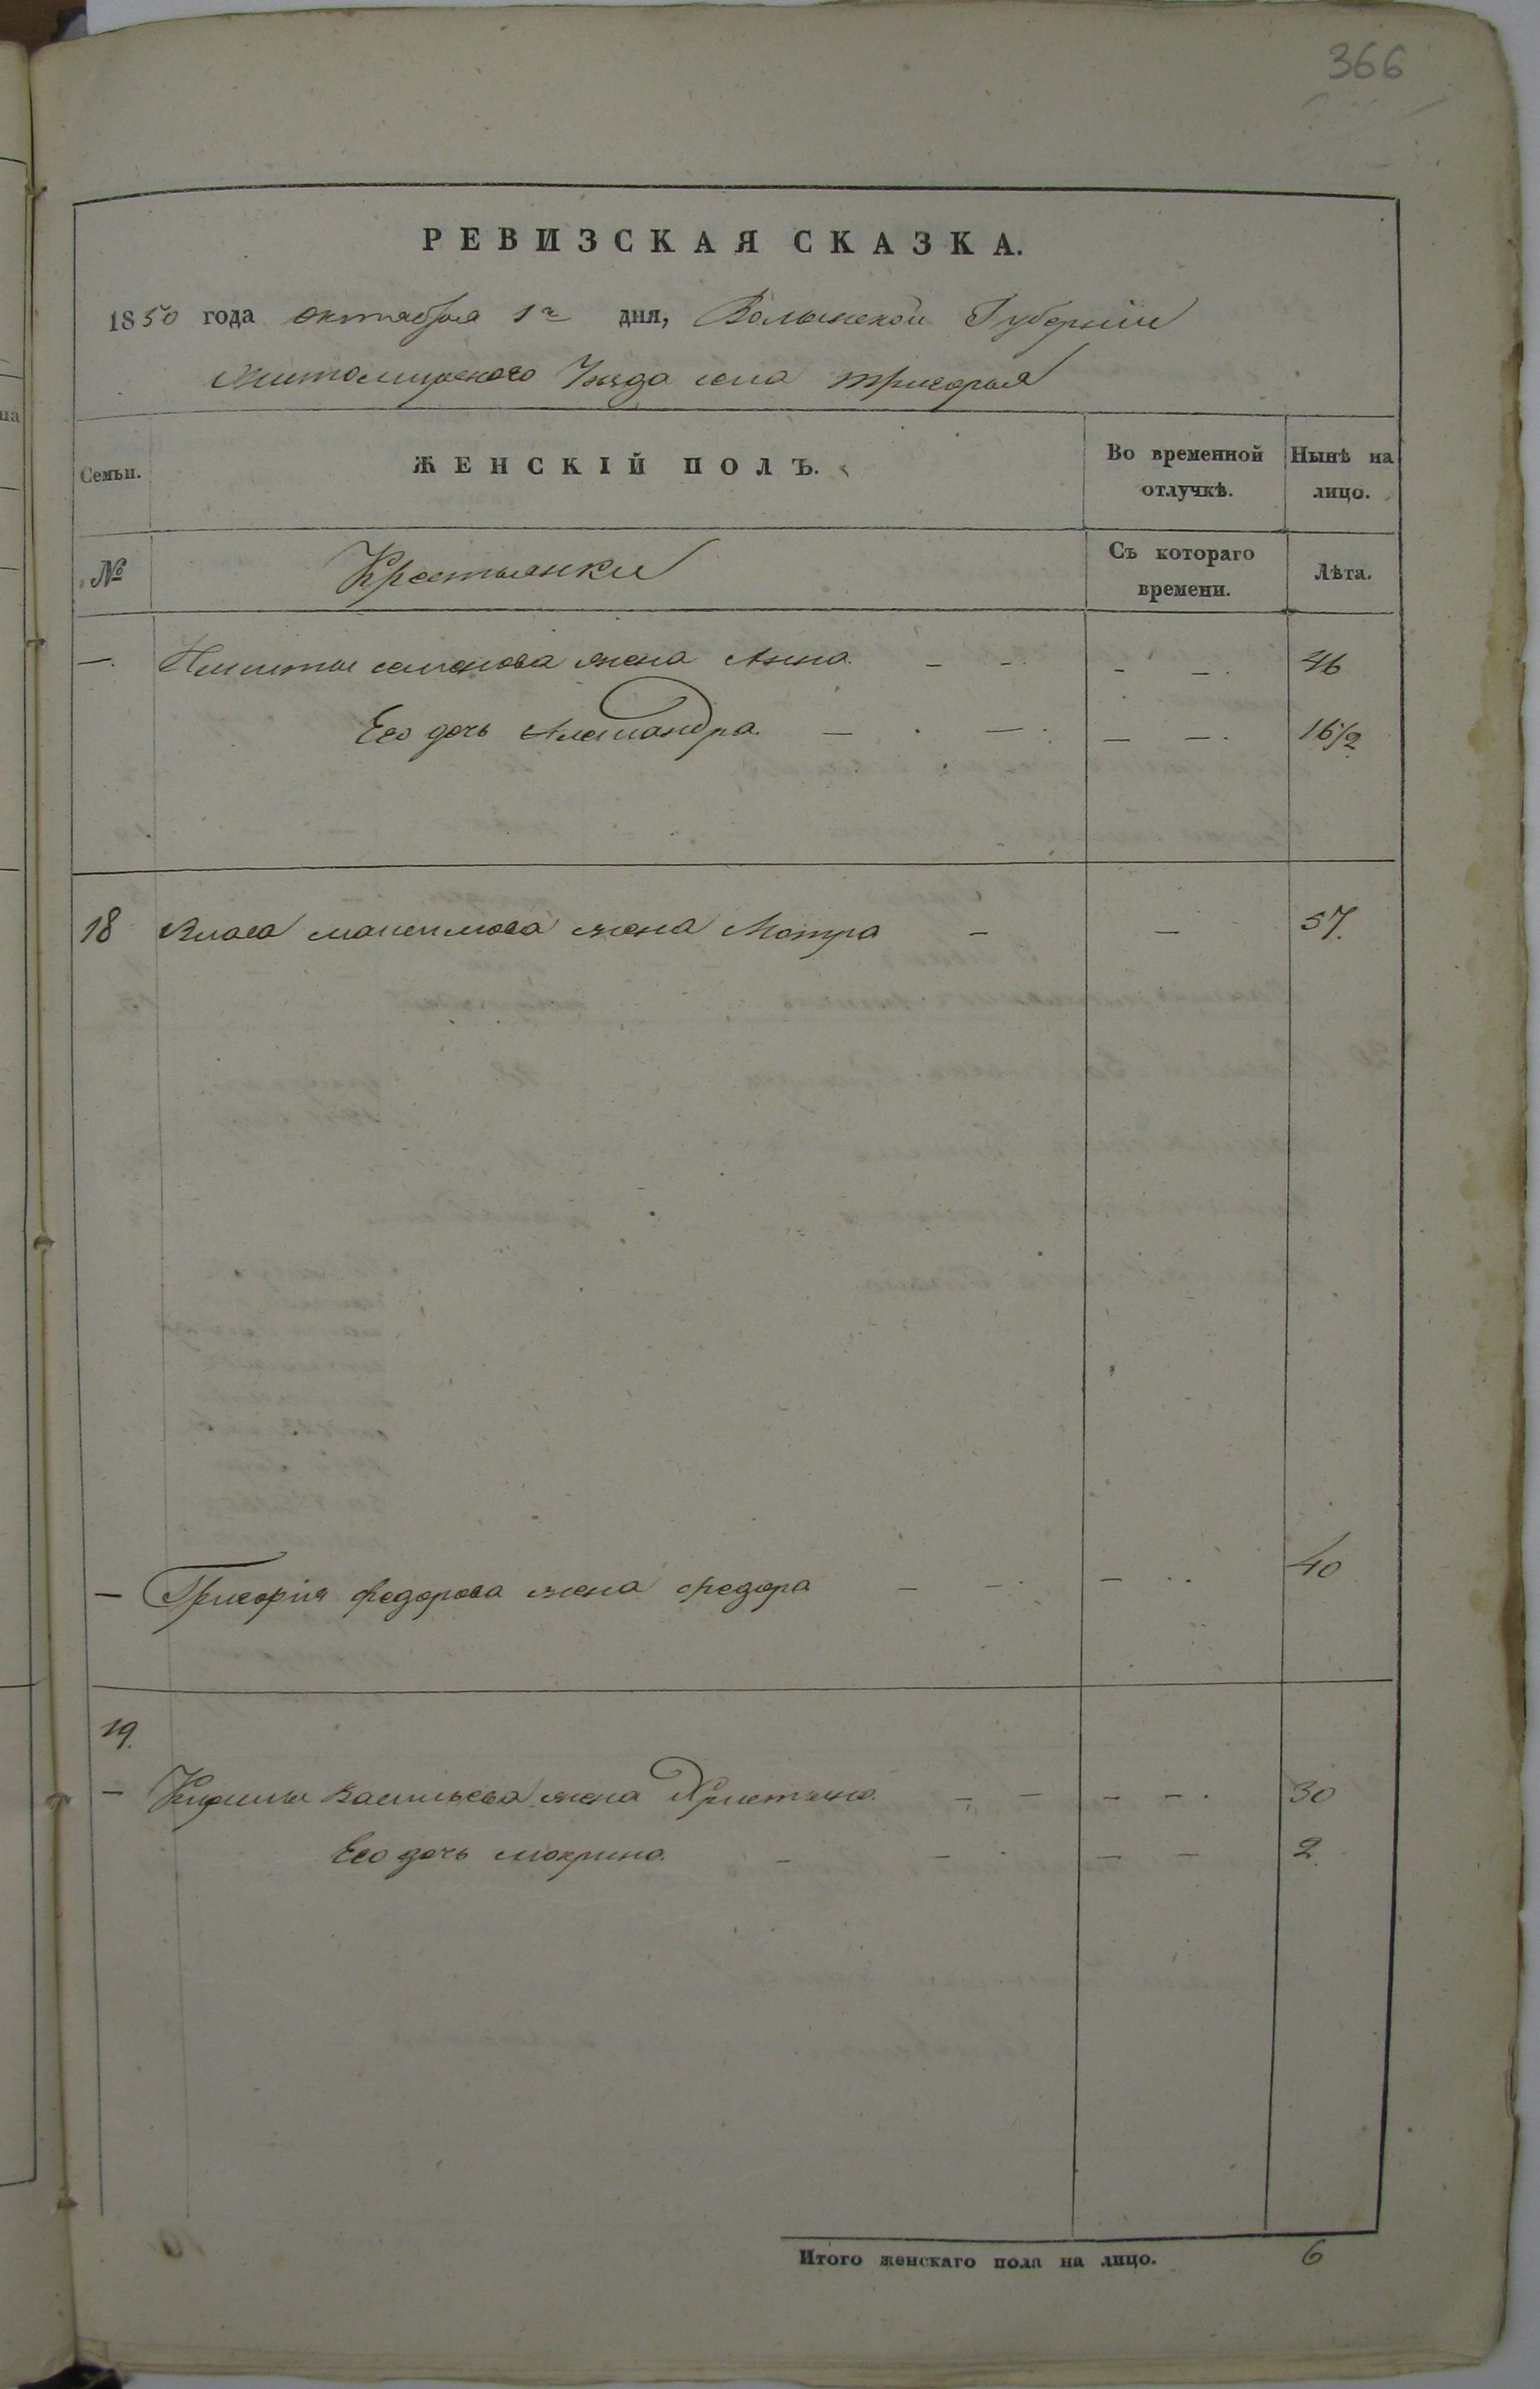 366
РЕВИЗСКАЯ СКАЗКА.
1850 года октября 1го дня, Волынской Губернии
Житомирского Уезда села Тригорья
Семьи. ЖЕНСКІЙ ПОЛЪ. Во временной отлучкѣ. Нынѣ на лицо.
№ Крестьянки Съ котораго времени. Лѣта.
—. Никиты семенова жена Анна. — —. — —. 46
Его дочь Александра. — . —. — —. 16 1/2
18 Власа максимова жена Мотра — — 57.
— Григорія федорова жена федора — —. — .. 40
19.
— васильева жена Христина. — — — —. 30
Его дочь мокрина. — — . — — 2.
Итого женскаго пола на лицо. 6